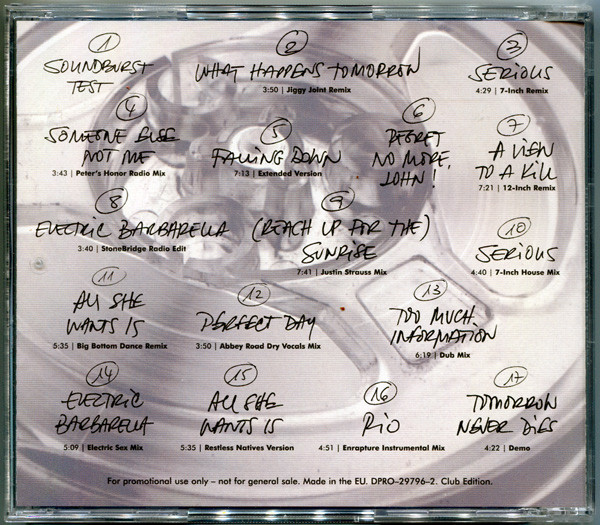 1
SOUNDBURST
TEST
2
WHAT HAPPENS TOMORROW
3:50 | Jiggy Joint Remix
3
SERIOUS
4:29 | 7-Inch Remix
4
SOMEONE ELSE
NOT ME
3:43 | Peter's Honor Radio Mix
5
FALLING DOWN
7:13 | Extended Version
6
REGRET
NO MORE,
JOHN!
7
A VIEW
TO A KILL
7:21 | 12-Inch Remix
8
ELECTRIC BARBARELLA
3:40 | StoneBridge Radio Edit
9
(REACH UP FOR THE)
SUNRISE
7:41 | Justin Strauss Mix
10
SERIOUS
4:40 | 7-Inch House Mix
11
ALL SHE
WANTS IS
5:35 | Big Bottom Dance Remix
12
PERFECT DAY
3:50 | Abbey Road Dry Vocals Mix
13
TOO MUCH
INFORMATION
6:19 | Dub Mix
14
ELECTRIC
BARBARELLA
5:09 | Electric Sex Mix
15
ALL SHE
WANTS IS
5:35 | Restless Natives Version
16
RIO
4:51 | Enrapture Instrumental Mix
17
TOMORROW
NEVER DIES
4:22 | Demo
For promotional use only – not for general sale. Made in the EU. DPRO–29796–2. Club Edition.